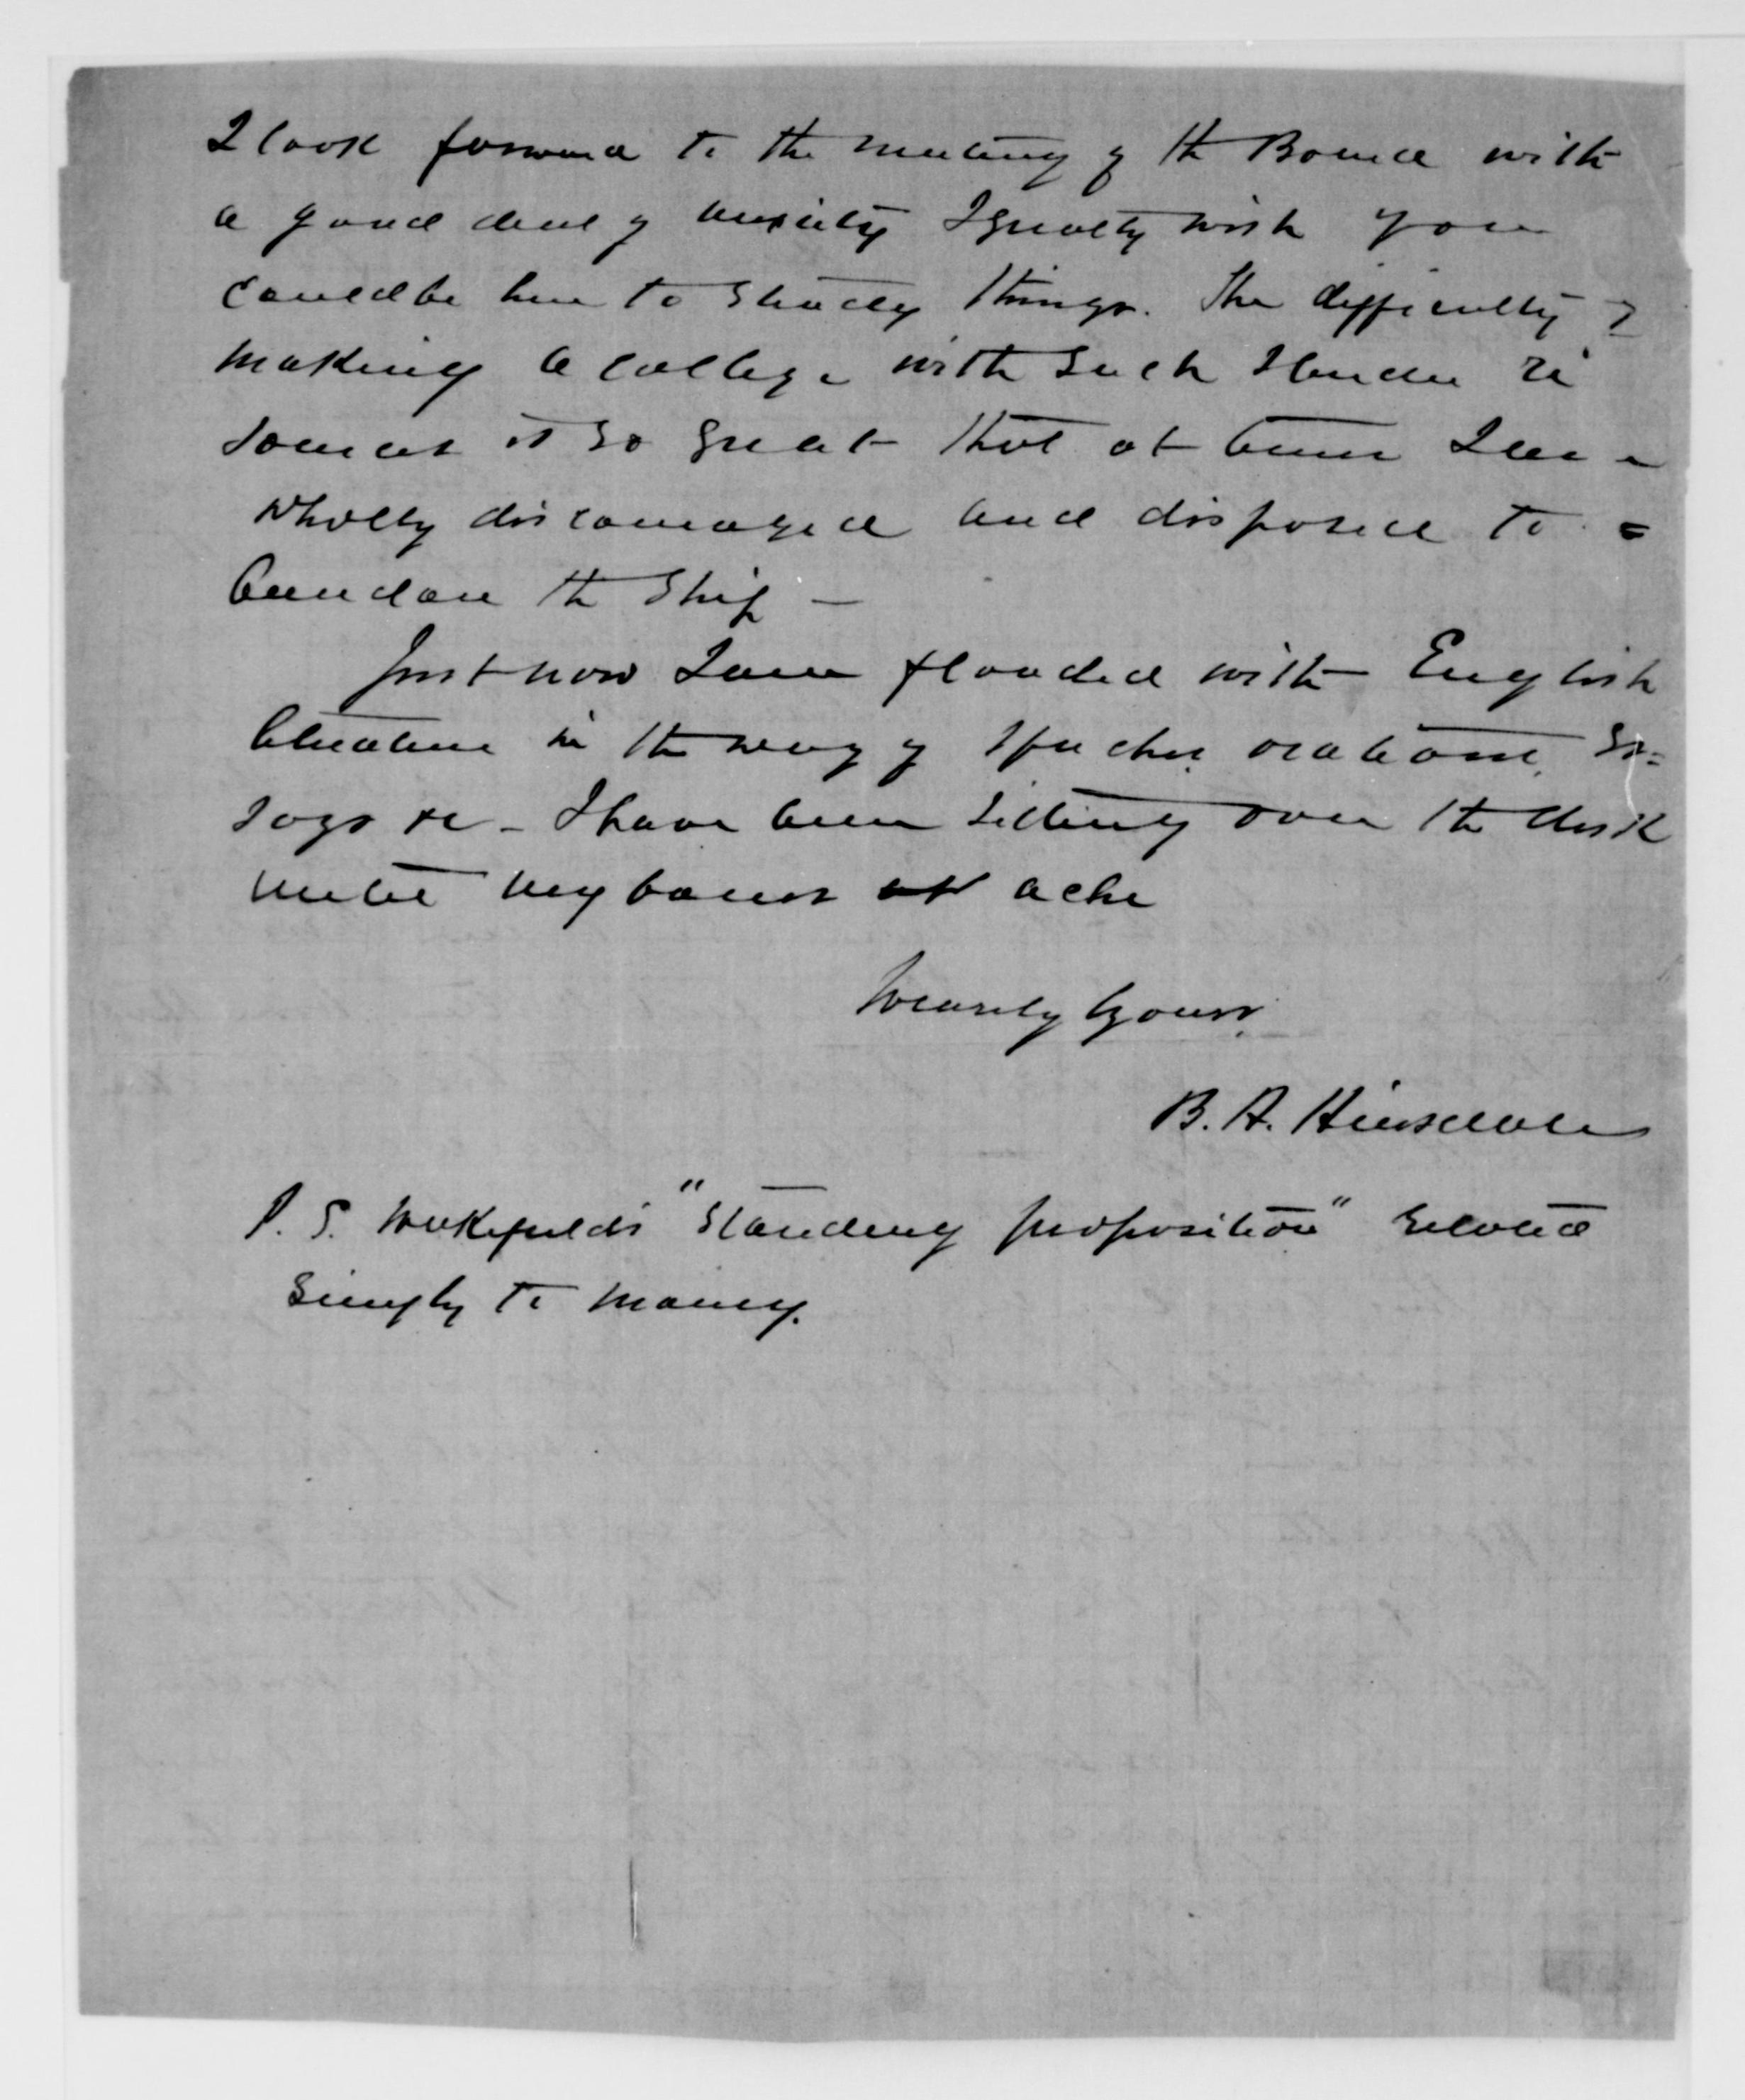 I look forward to the meeting of the Board with
a good deal of anxiety I greatly wish you
could be here to steady things. The difficulty of
making a college with such slender re
sources is so great that at times I am
wholly discouraged and disposed to a=
bandon the ship —
Just now I am flooded with English
literature in the way of speeches, orations, es=
says &c — I have been sitting over the desk
until my bones ache
Wearily Yours,
B. A. Hinsdale
P. S. Wakefield's "standing proposition" related
simply to money.